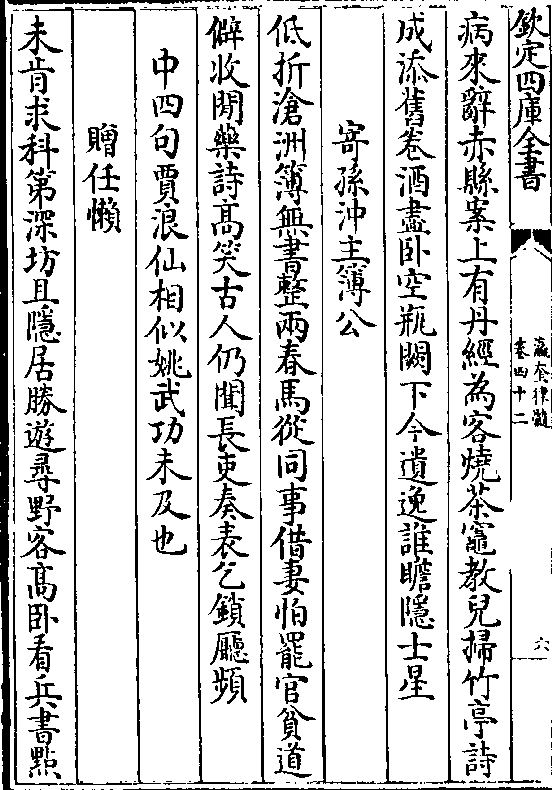 欽定四庫全書
瀛奎律髓
卷四十二
六
病來辭赤縣案上有丹經為客燒茶竈教兒掃竹亭詩
成添舊卷酒盡卧空瓶闕下今遺逸誰瞻隱士星
寄孫沖主簿公
低折滄洲簿無書整兩春馬從同事借妻怕罷官貧道
僻收閒藥詩髙笑古人仍聞長吏奏表乞鎖廳頻
中四句賈浪仙相似姚武功未及也
贈任懶
未肯求科第深坊且隱居勝遊尋野客髙卧看兵書㸃